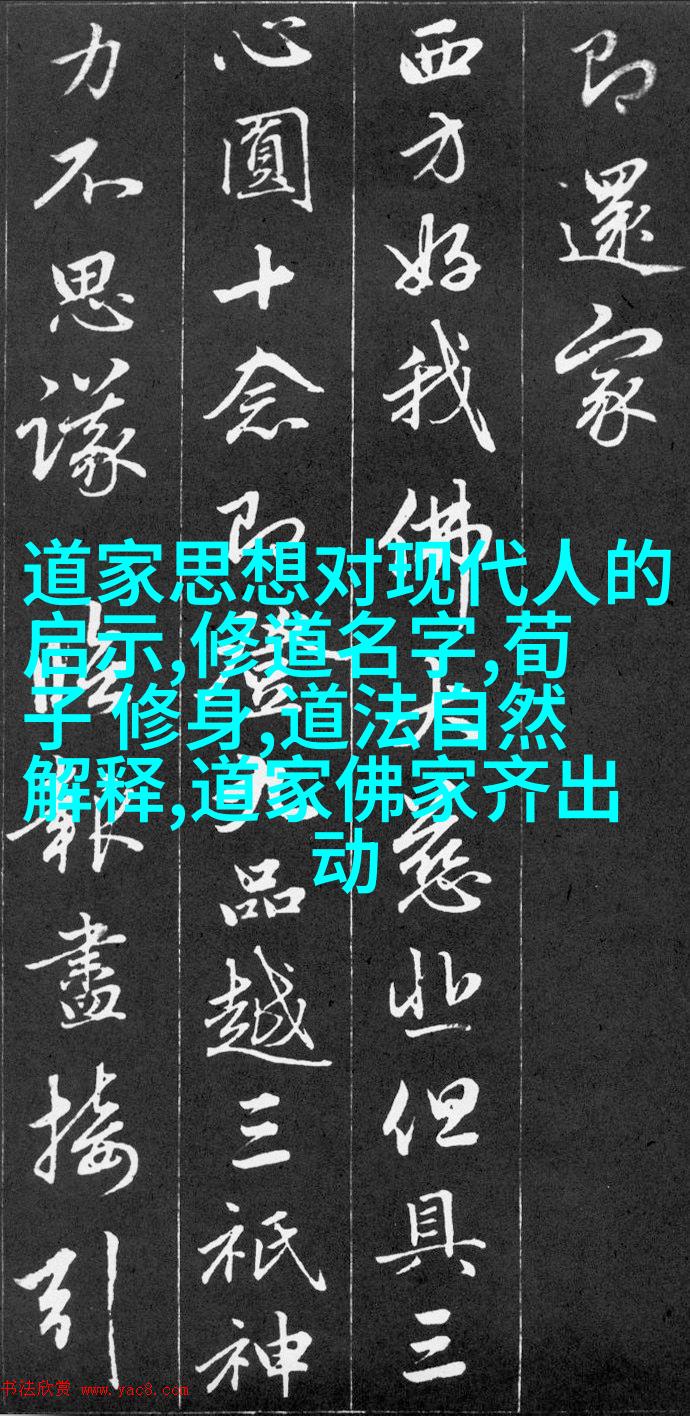 即還家
西方好我佛大慈悲但具三
心圓十念即登九品越三祇神
力不思議臨報盡接引
道家思想对现代人的
启示,修道名字,荀
子 修身,道法自然
解释,道家佛家齐出
动
书法欣赏 www.yac8.com